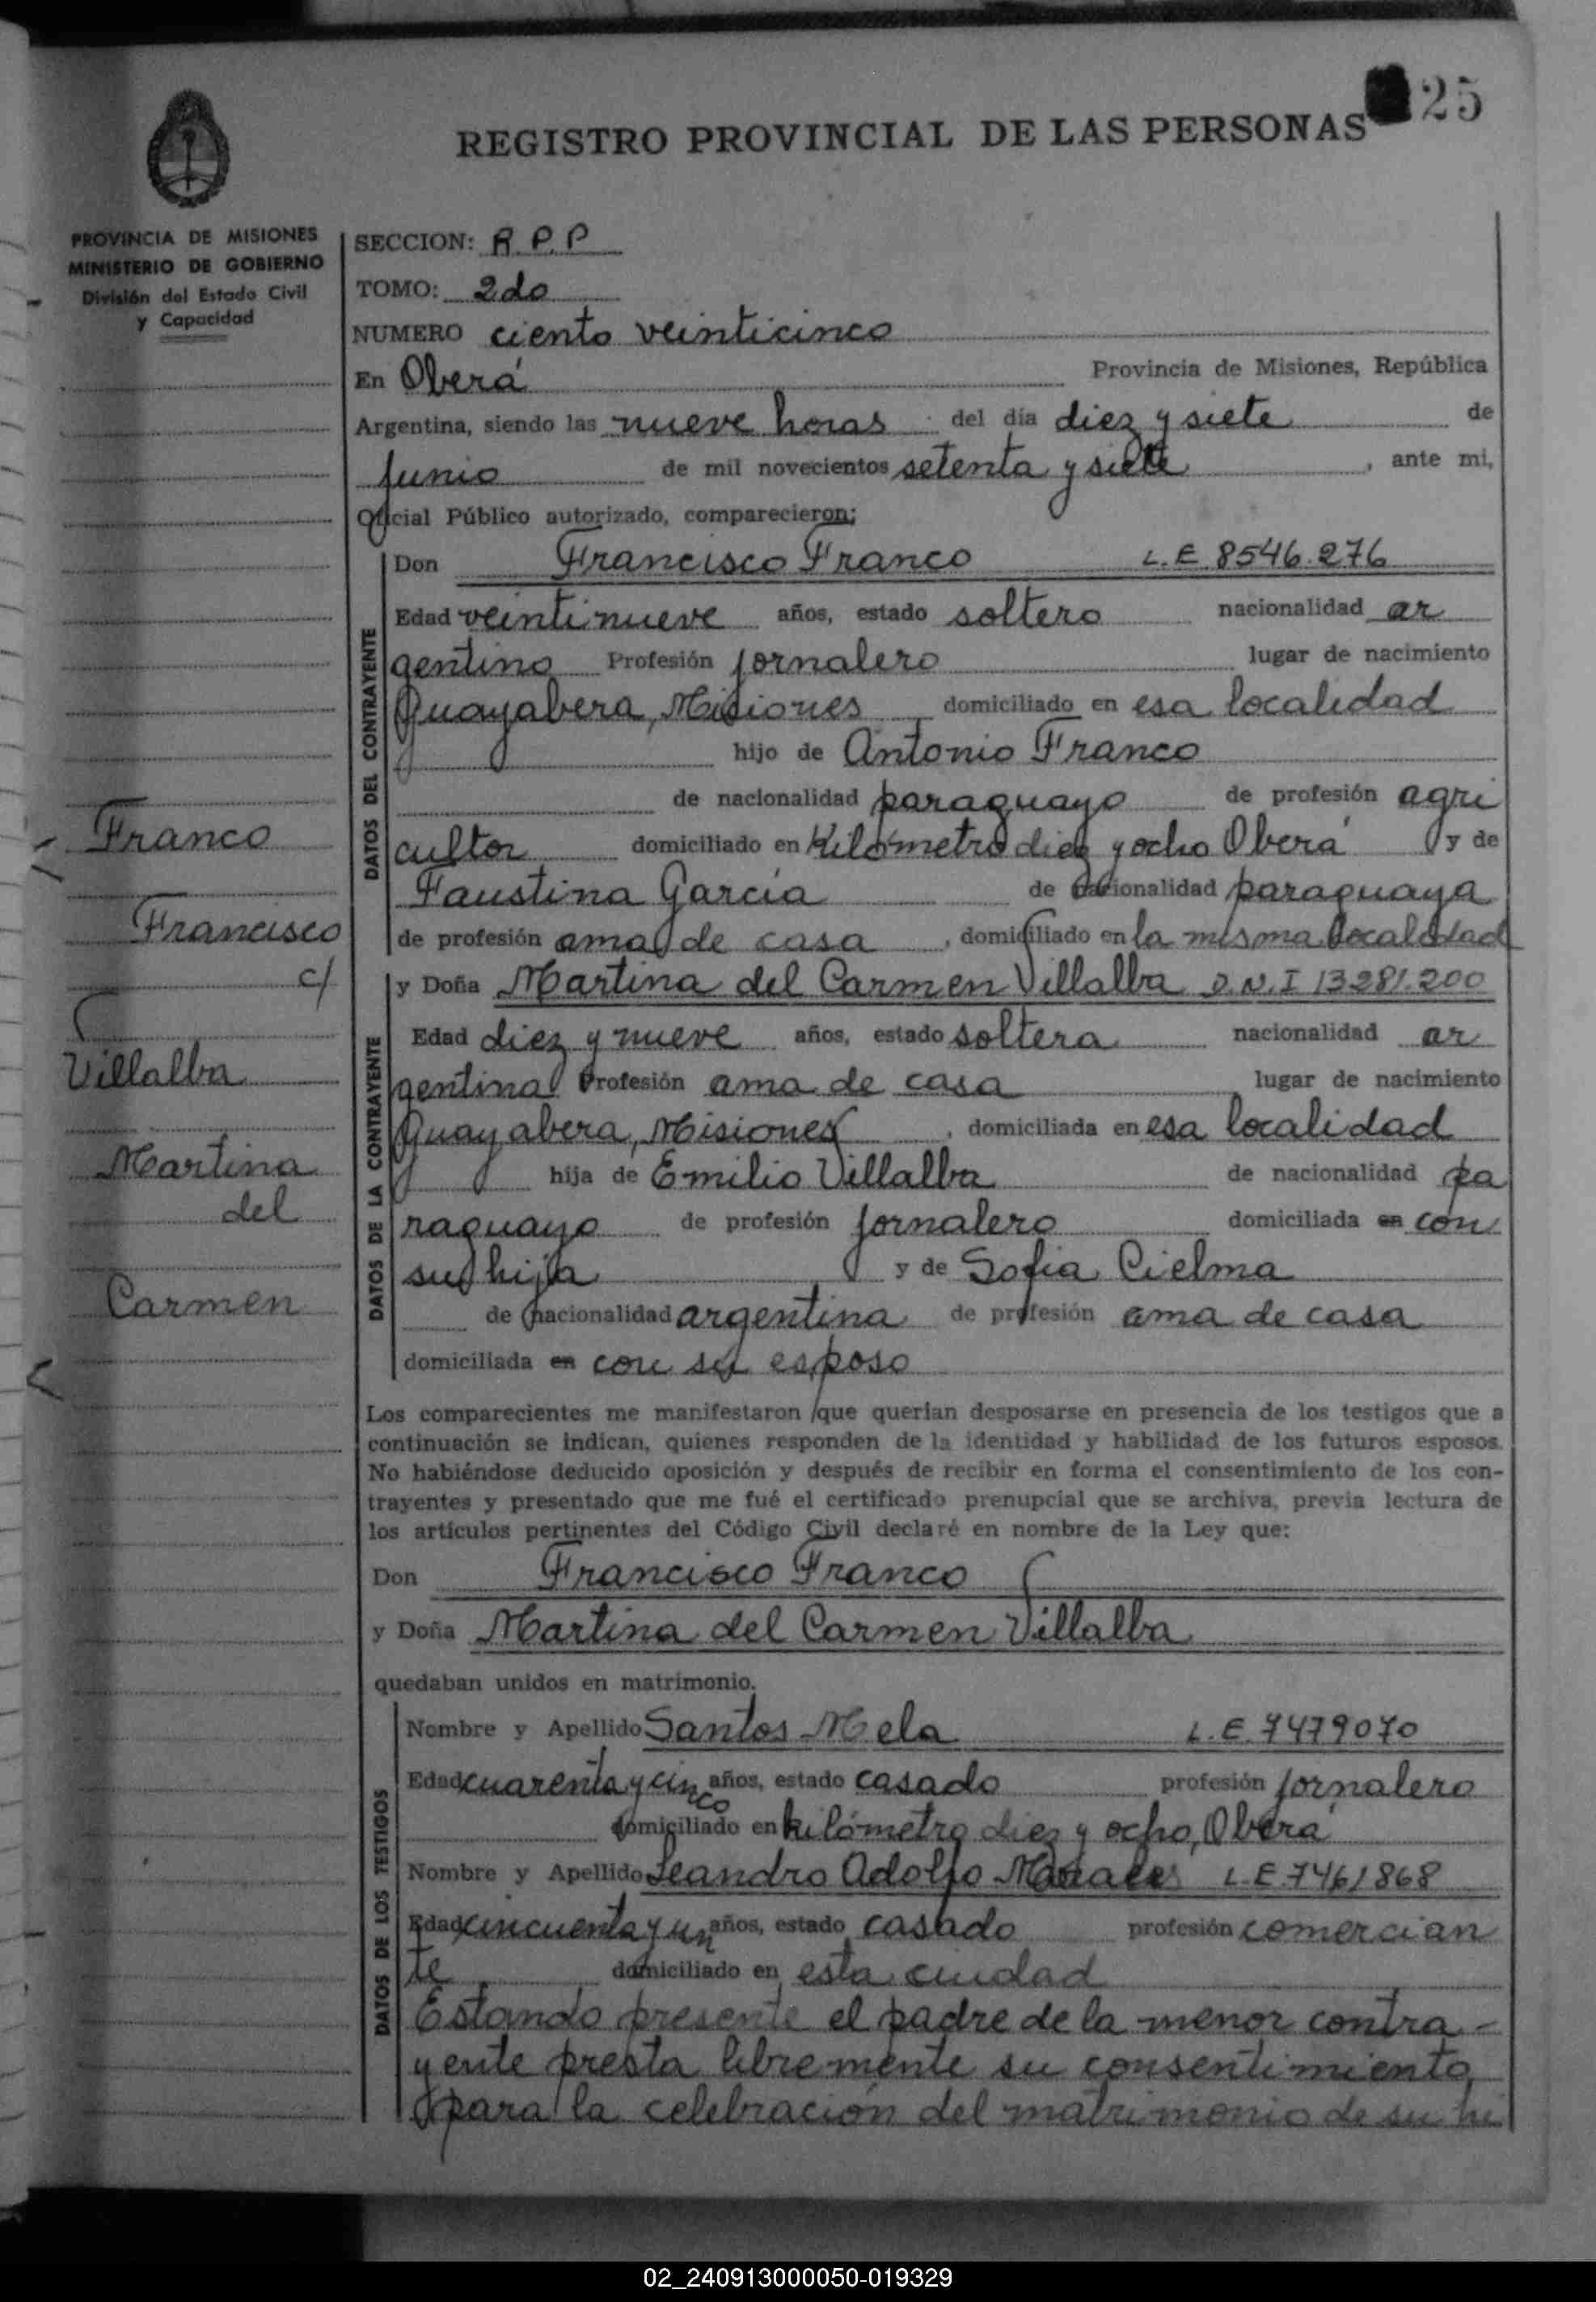 25
REGISTRO PROVINCIAL DE LAS PERSONAS
PROVINCIA DE MISIONES
MINISTERIO DE GOBIERNO
División del Estado Civil
y Capacidad
Franco
Francisco
c/
Villalba
Martina
del
Carmen
SECCION: R.P.P
TOMO: 2do
NUMERO ciento veinticinco
En Oberá Provincia de Misiones, República
Argentina, siendo las nueve horas del día diez y siete de
Junio de mil novecientos setenta y siete, ante mi,
Oficial Público autorizado, comparecieron;
DATOS DEL CONTRAYENTE
Don Francisco Franco L.E. 8546.276
Edad veintinueve años, estado soltero nacionalidad ar
gentino Profesión jornalero lugar de nacimiento
Guayabera, Misiones domiciliado en esa localidad
hijo de Antonio Franco
de nacionalidad paraguayo de profesión agri
cultor domiciliado en Kilómetro diez y ocho Oberá y de
Faustina García de nacionalidad paraguaya
de profesión ama de casa, domiciliado en la misma localidad
DATOS DE LA CONTRAYENTE
y Doña Martina del Carmen Villalba D.N.I 13281.200
Edad diez y nueve años, estado soltera nacionalidad ar
gentina Profesión ama de casa lugar de nacimiento
Guayabera, Misiones, domiciliada en esa localidad
hija de Emilio Villalba de nacionalidad pa
raguayo de profesión jornalero domiciliada en con
su hija y de Sofia Cielma
de nacionalidad argentina de profesión ama de casa
domiciliada en con su esposo
Los comparecientes me manifestaron que querían desposarse en presencia de los testigos que a
continuación se indican, quienes responden de la identidad y habilidad de los futuros esposos.
No habiéndose deducido oposición y después de recibir en forma el consentimiento de los con-
trayentes y presentado que me fué el certificado prenupcial que se archiva, previa lectura de
los artículos pertinentes del Código Civil declaré en nombre de la Ley que:
Don Francisco Franco
y Doña Martina del Carmen Villalba
quedaban unidos en matrimonio.
DATOS DE LOS TESTIGOS
Nombre y Apellido Santos Mela L.E. 7479070
Edad cuarenta y cinco años, estado casado profesión jornalero
domiciliado en kilómetro diez y ocho, Oberá
Nombre y Apellido Leandro Adolfo L.E 7461868
Edad cincuenta y un años, estado casado profesión comercian
te domiciliado en esta ciudad
Estando presente el padre de la menor contra-
yente presta libremente su consentimiento
para la celebración del matrimonio de su hi
02_240913000050-019329